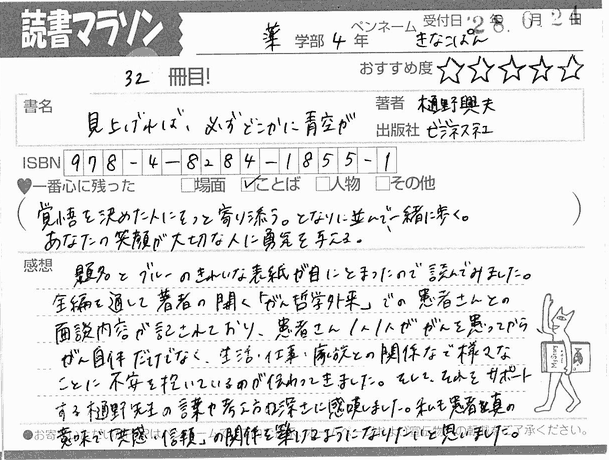 読書マラソン
薬 学部 4 年
ペンネーム きなこぱん
受付日 '28. 6月24日
32 冊目!
おすすめ度 ☆☆☆☆☆
書名 見上げれば、必ずどこかに青空が
著者 樋野興夫
出版社 ビジネス社
ISBN 978-4-8284-1855-1
♥一番心に残った □場面 ☑ことば □人物 □その他
覚悟を決めた人にそっと寄り添う。となりに並んで一緒に歩く。
あなたの笑顔が大切な人に勇気を与える。
感想
題名とブルーのきれいな表紙が目にとまったので読んでみました。
全編を通して著者の開く「がん哲学外来」での患者さんとの
面談内容が記されており、患者さん1人1人ががんを患ってから
がん自体だけでなく、生活・仕事・病院との関係など様々な
ことに不安を抱いているのが伝わってきました。そして、それをサポート
する樋野先生の言葉や考え方の深さに感嘆しました。私も患者と真の
意味で「共感・信頼」の関係を築けるようになりたいと思いました。
●お寄せ
ご了承ください。